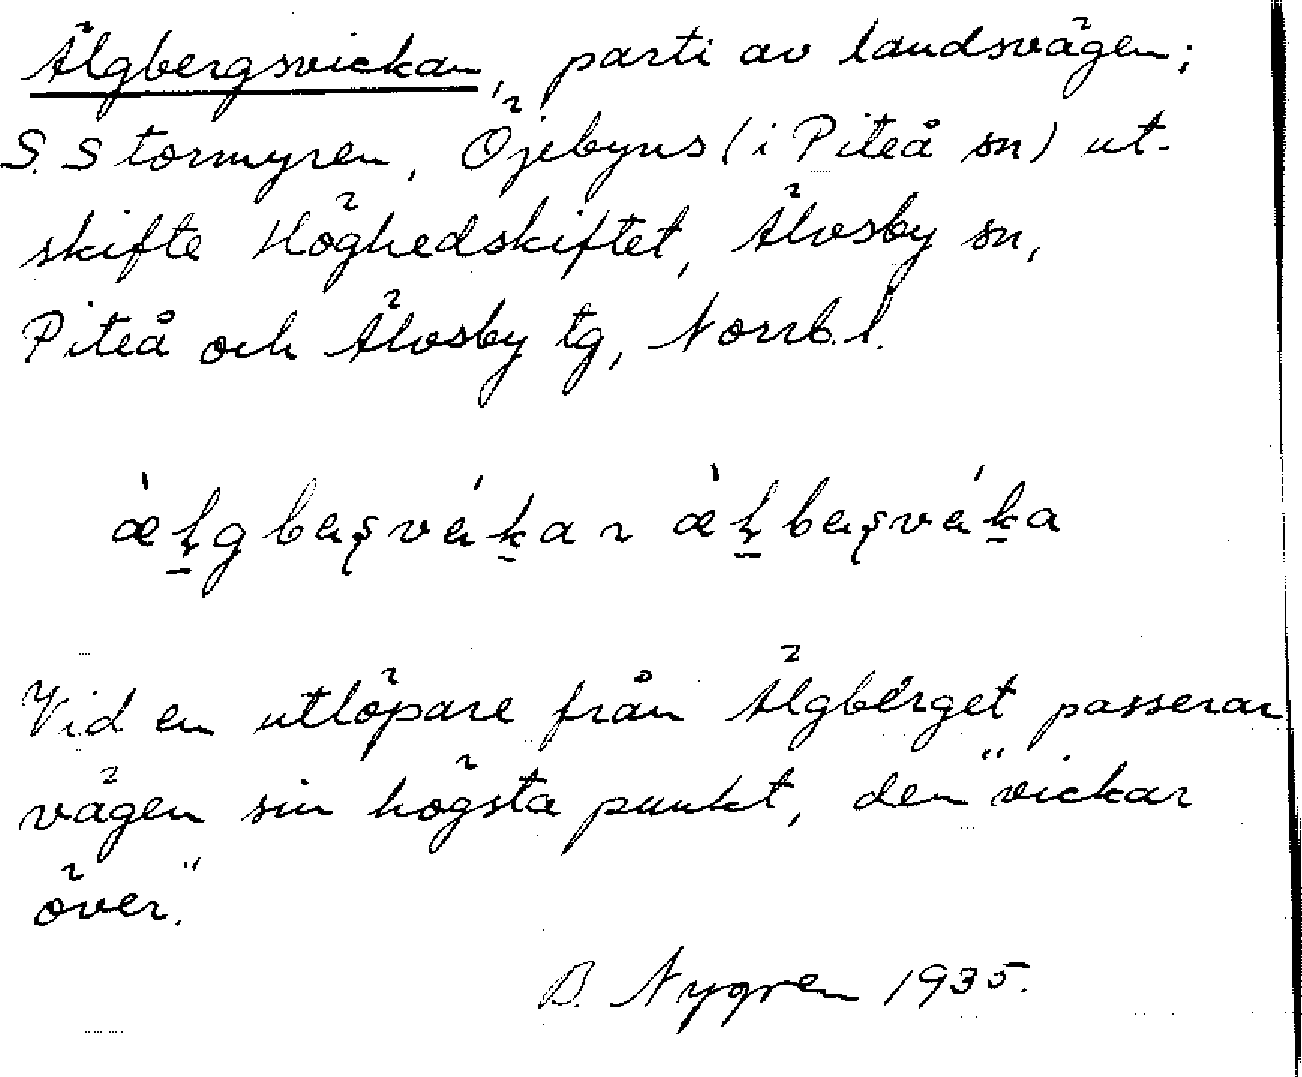 Älgbergsvickan, parti av landsvägen;
S. Stormyren, Öjebyns (i Piteå sn) ut-
skifte Höghedskiftet, Älvsby sn,
Piteå och Älvsby tg, Norrb. l.
Vid en utlöpare från Älgbérget passerar
vägen sin högsta punkt, den "vickar
över."
B. Nygren 1935.